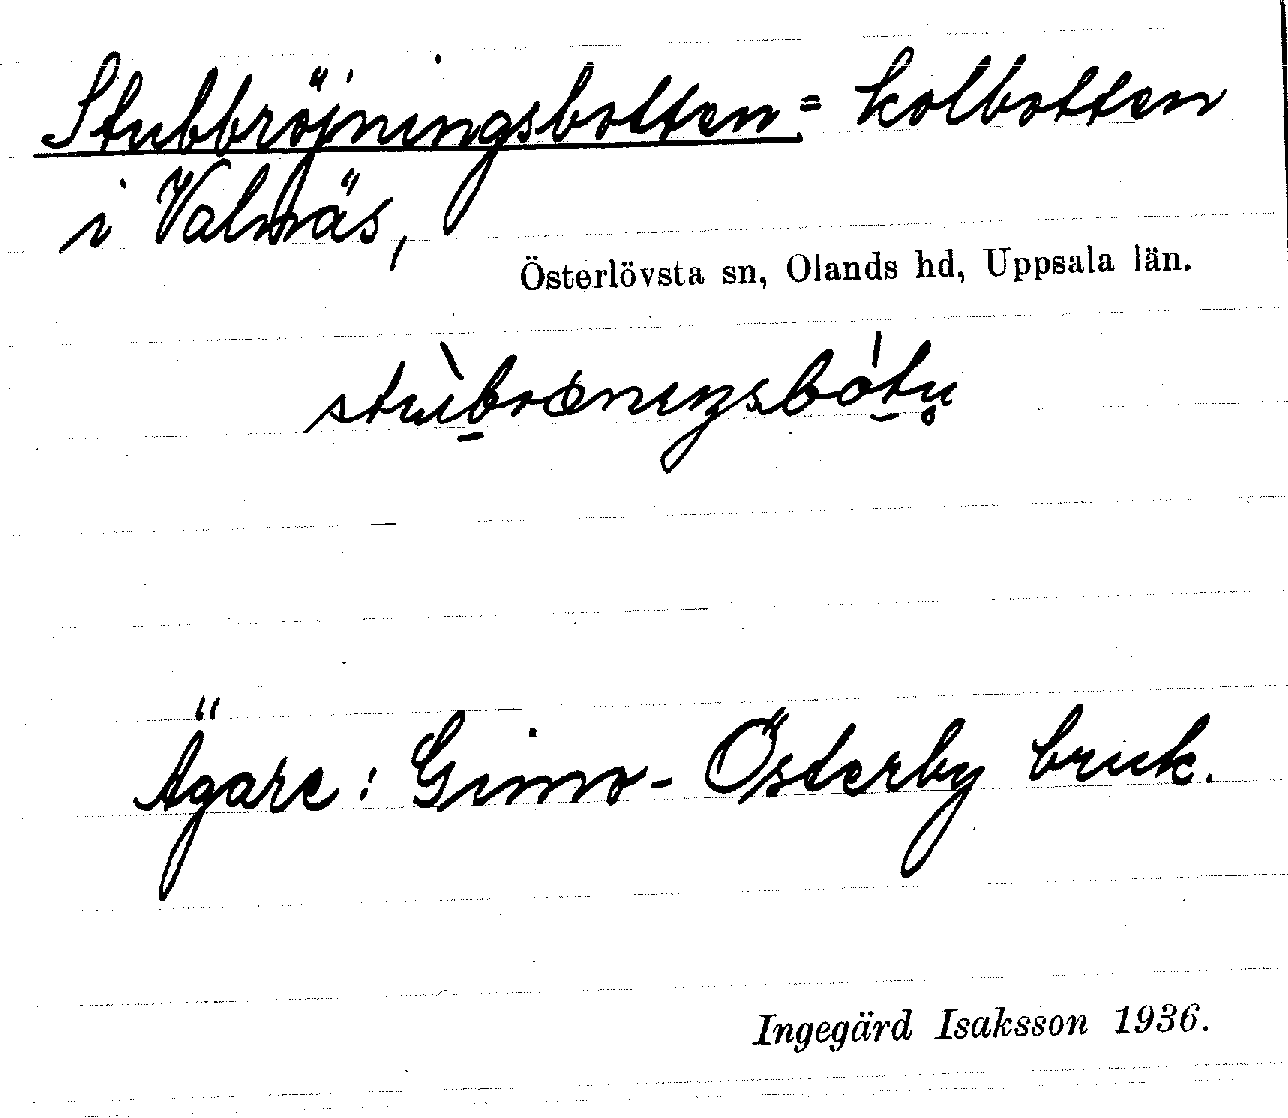 Stubbröjningsbotten = kolbotten
i Valnäs,
Österlövsta sn, Olands hd, Uppsala län.
Ägare: Gimo-Österby bruk.
Ingegärd Isaksson 1936.